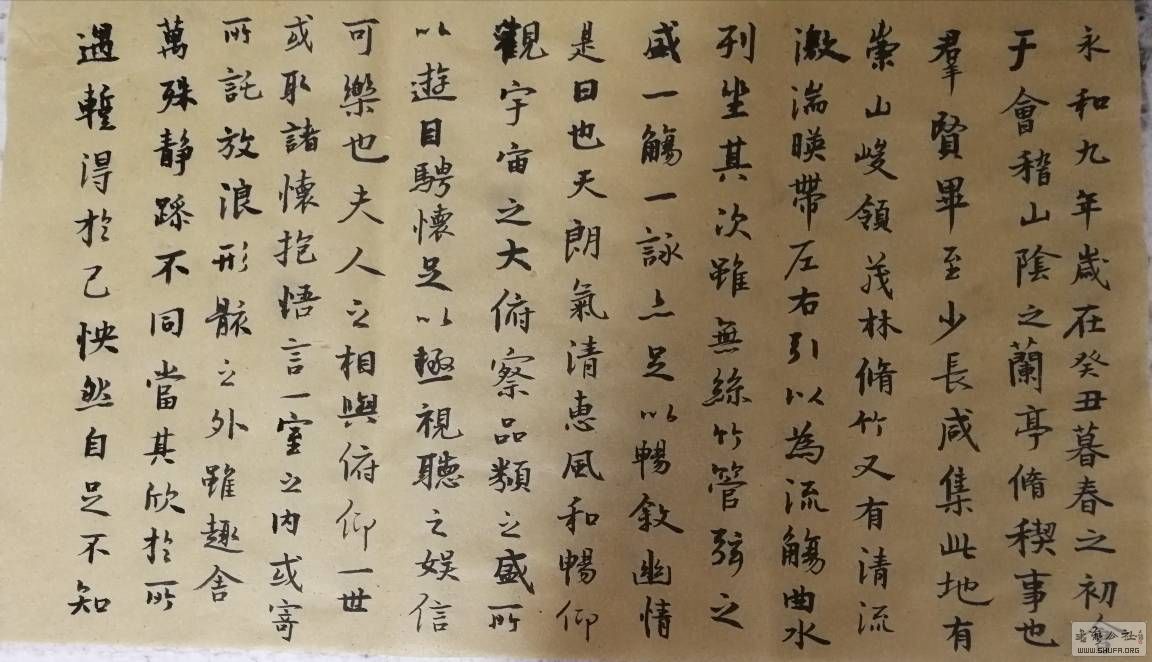 永和九年歲在癸丑暮春之初會
于會稽山陰之蘭亭脩稧事也
羣賢畢至少長咸集此地有
崇山峻領茂林脩竹又有清流
激湍暎帶左右引以為流觴曲水
列坐其次雖無絲竹管弦之
盛一觴一詠亦足以暢敘幽情
是日也天朗氣清恵風和暢仰
觀宇宙之大俯察品類之盛所
以遊目騁懷足以極視聽之娛信
可樂也夫人之相與俯仰一世
或取諸懷抱悟言一室之內或寄
所託放浪形骸之外雖趣舍
萬殊静躁不同當其欣於所
遇蹔得於己怏然自足不知
WWW.SHUFA.ORG